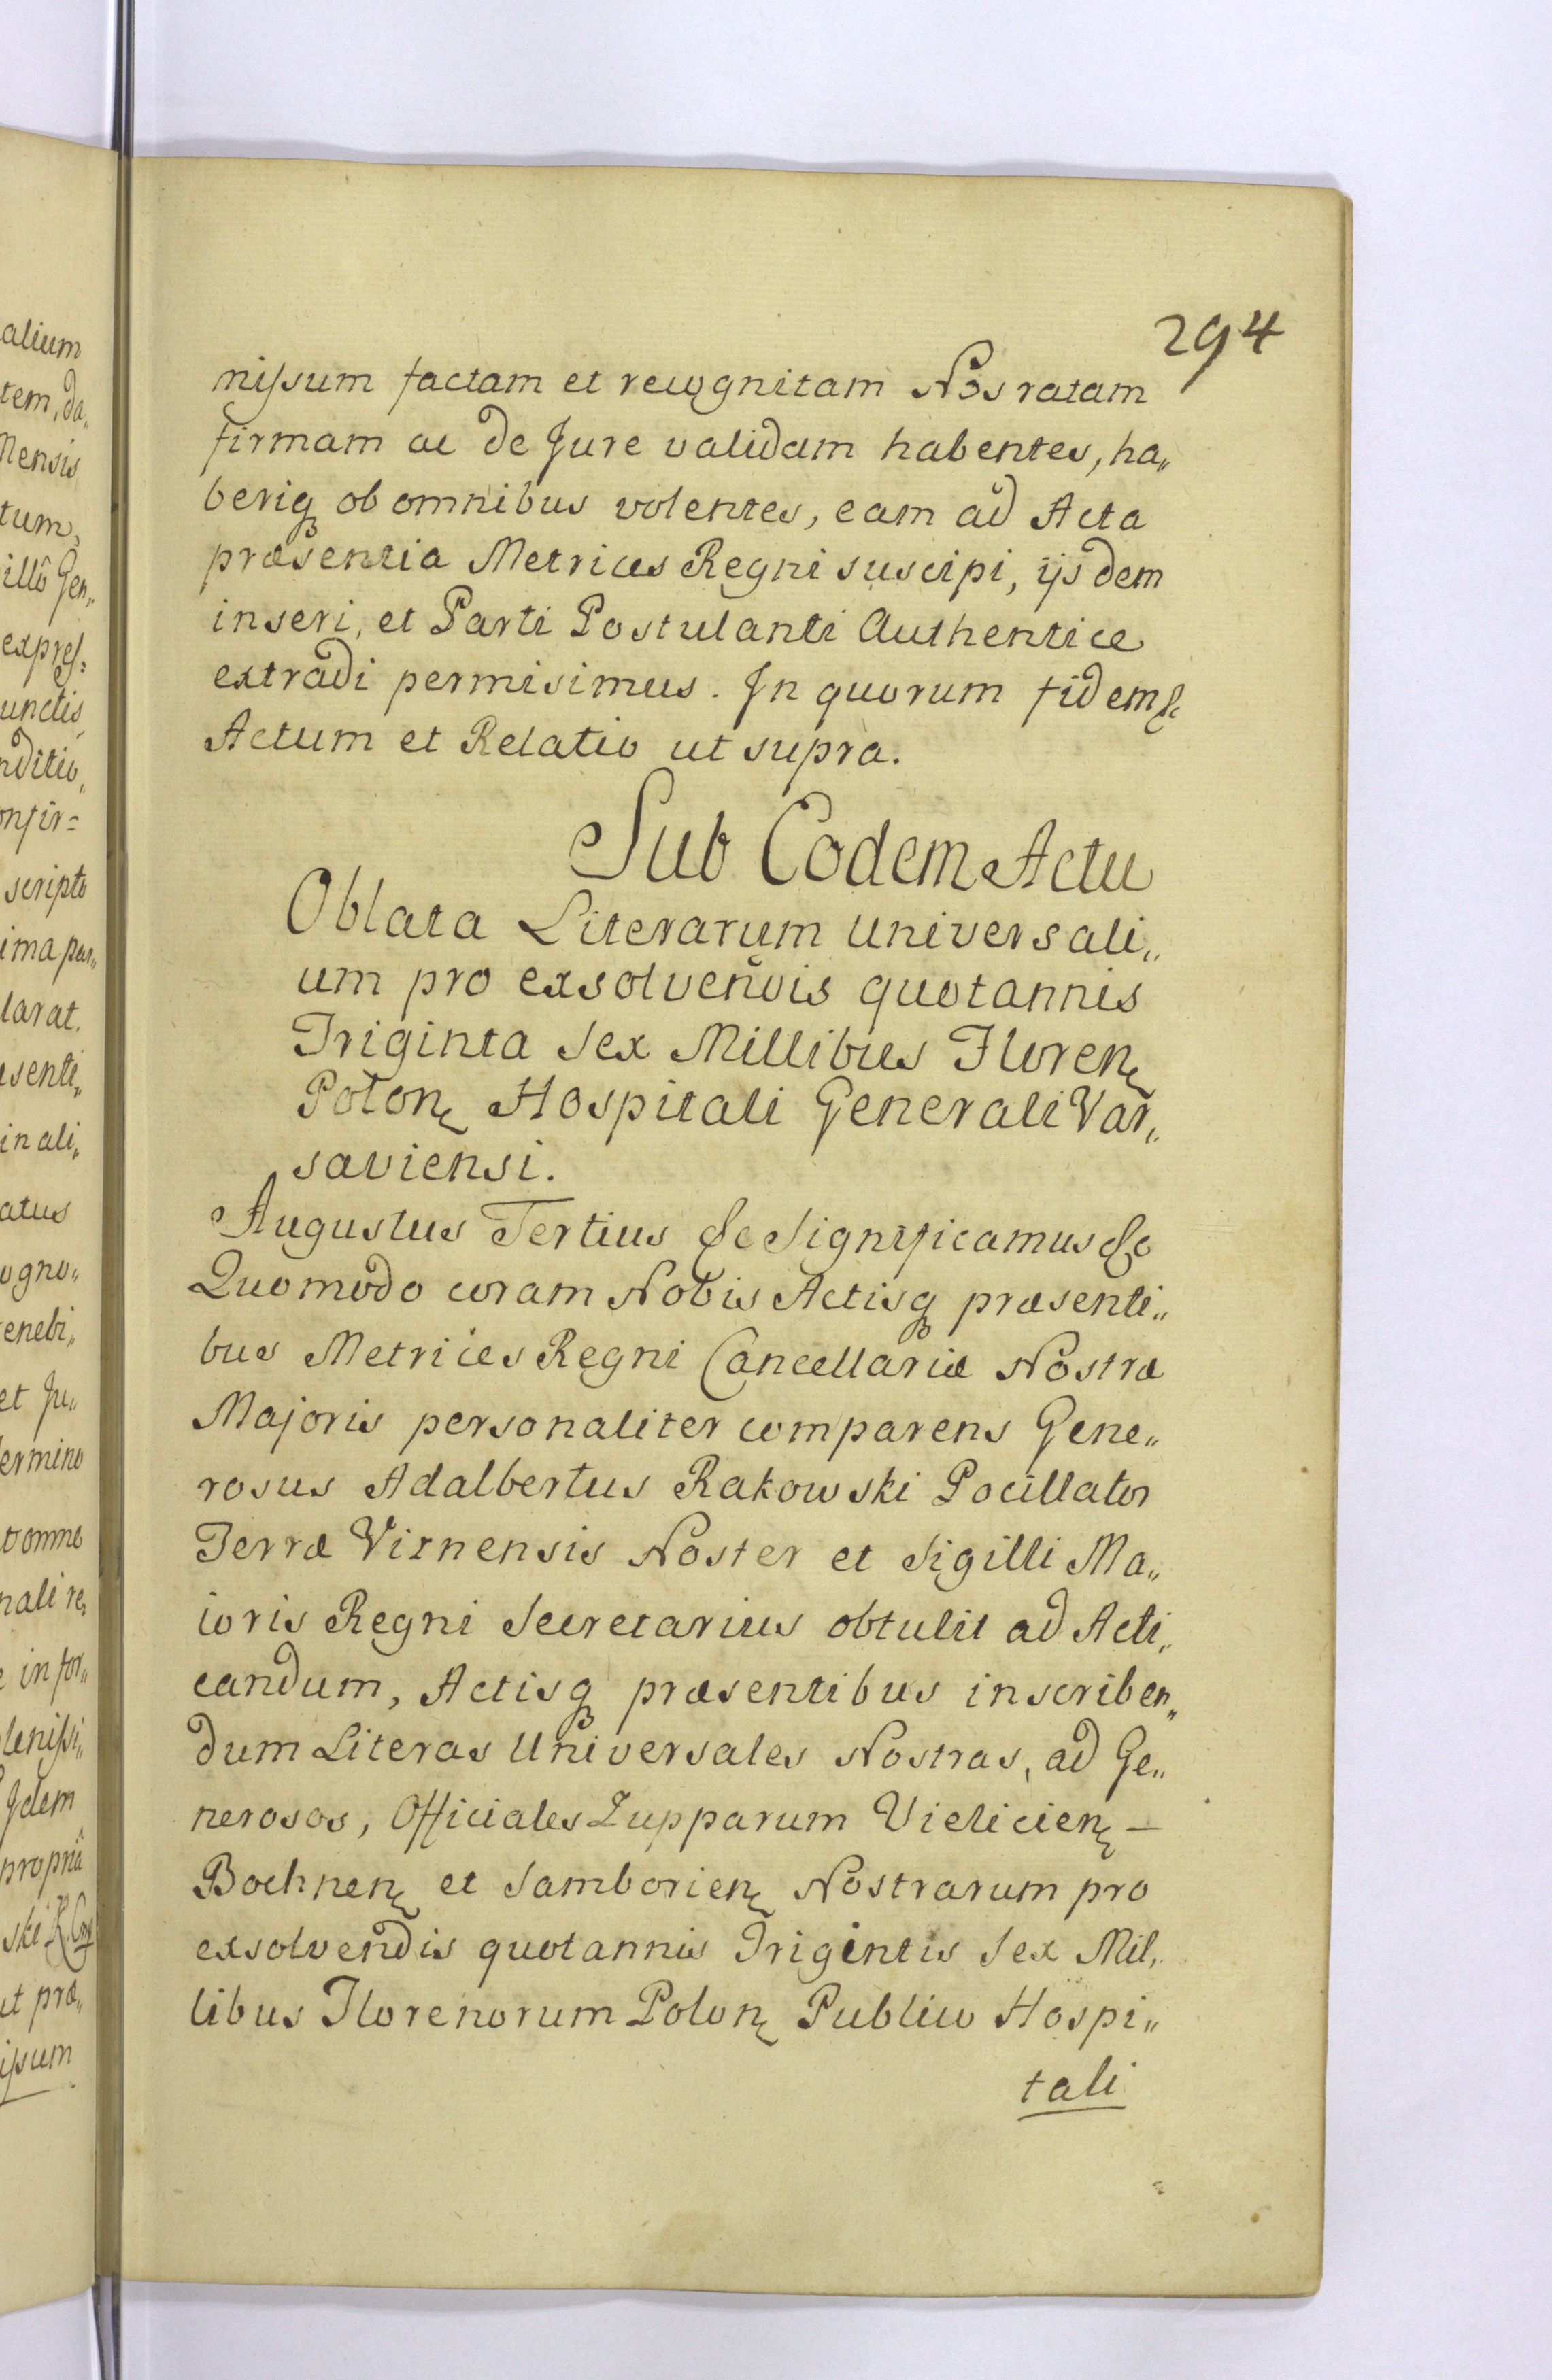 294
nissum factam et recognitam Nos ratam
firmam ac de Jure validam habentes, ha„
beriq ob omnibus volentes, eam ad Acta
præsentia Metrices Regni suscipi, ijsdem
inseri, et Parti Postulanti Authentice
extradi permisimus. In quorum fidem &c
Actum et Relatio ut supra.
Sub Eodem Actu
Oblata Literarum Universali„
um pro exsolvendis quotannis
Triginta Sex Millibus Floren
Polon Hospitali Generali Var„
saviensi.
Augustus Tertius &c Significamus &c
Quomodo coram Nobis Actisq præsenti„
bus Metrices Regni Cancellariæ Nostræ
Majoris personaliter comparens Gene„
rosus Adalbertus Rakowski Pocillator
Terræ Viznensis Noster et Sigilli Ma„
ioris Regni Secretarius obtulit ad Acti„
candum, Actisq præsentibus inscriben„
dum Literas Universales Nostras, ad Ge„
nerosos, Officiales Zupparum Vielicien –
Bochnen et Samborien Nostrarum pro
exsolvendis quotannis Trigintis Sex Mil„
libus Florenorum Polon Publico Hospi„
tali